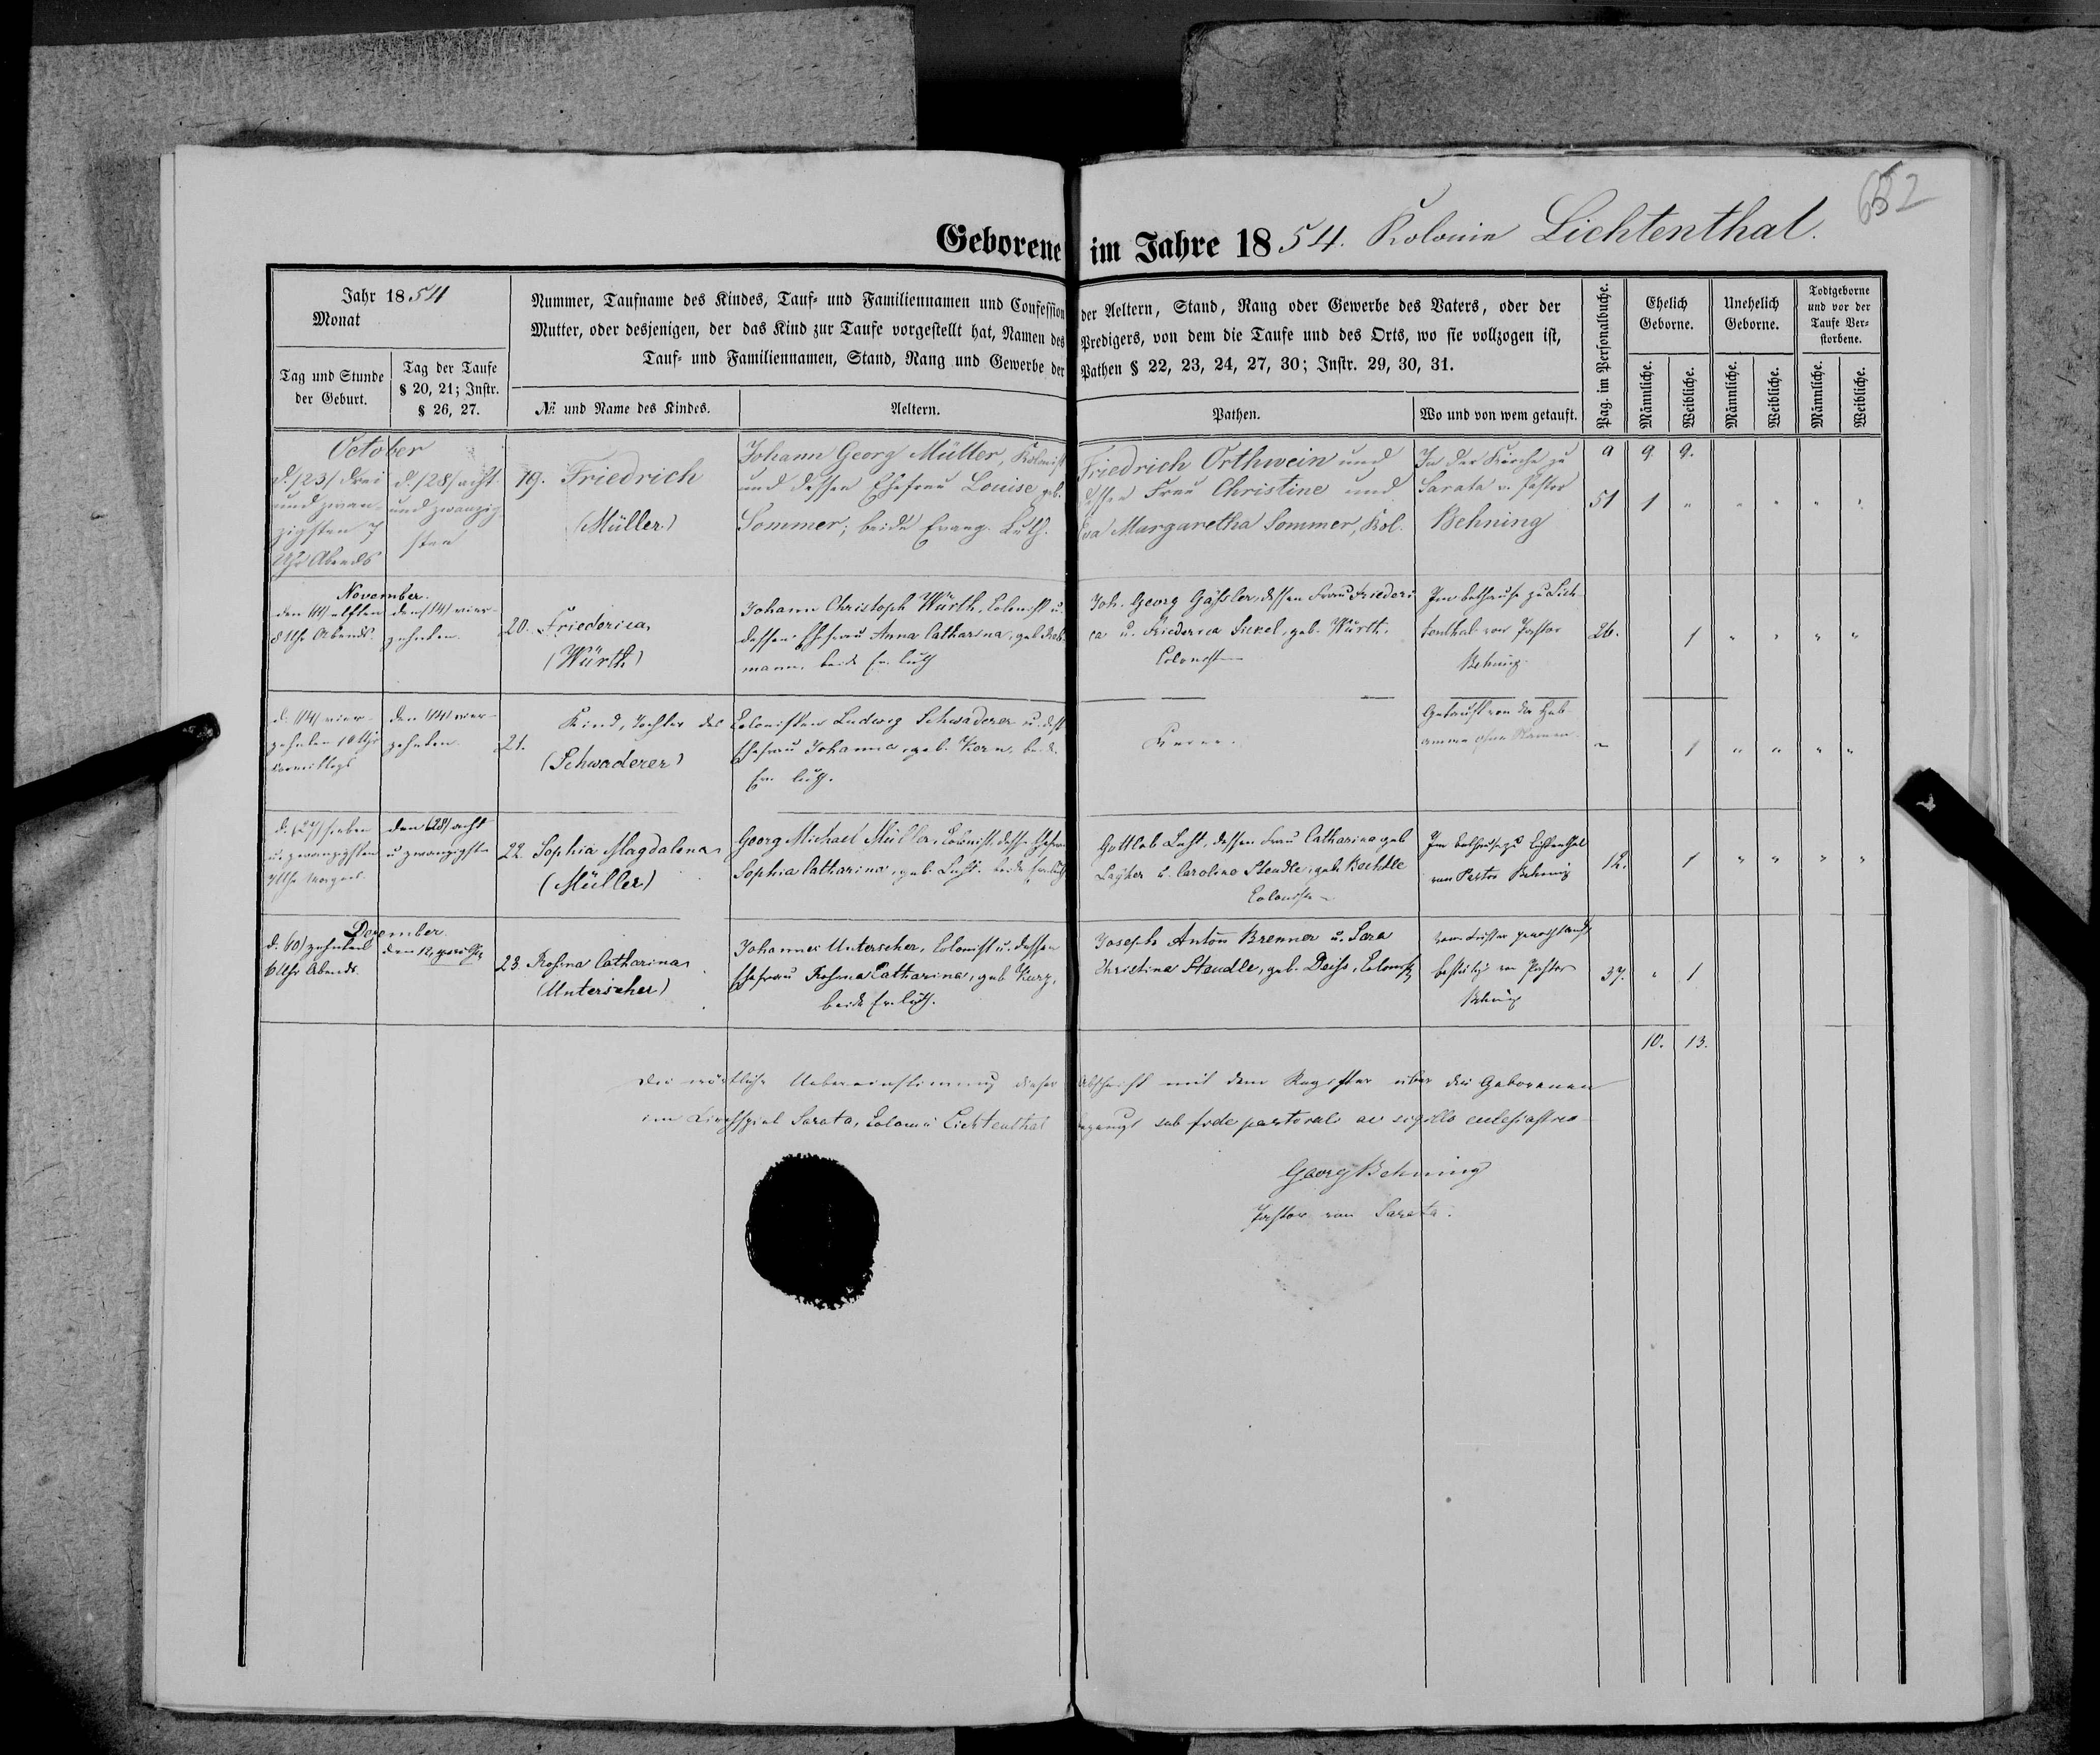 652
Geborene im Jahre 1854. Kolonie Lichtenthal.
Jahr 1854
Monat
Tag und Stunde der Geburt.
Tag der Taufe § 20, 21; Instr. § 26, 27.
Nummer, Taufname des Kindes, Tauf- und Familiennamen und Confession der Aeltern, Stand, Rang oder Gewerbe des Vaters, oder der
Mutter, oder desjenigen, der das Kind zur Taufe vorgestellt hat, Namen des Predigers, von dem die Taufe und des Orts, wo sie vollzogen ist,
Tauf- und Familiennamen, Stand, Rang und Gewerbe der Pathen § 22, 23, 24, 27, 30; Instr. 29, 30, 31.
№ und Name des Kindes.
Aeltern.
Pathen.
Wo und von wem getauft.
Pag. im Personalbuche.
Ehelich Geborne.
Unehelich Geborne.
Todtgeborne und vor der Taufe Verstorbene.
Männliche. Weibliche. Männliche. Weibliche. Männliche. Weibliche.
October
d. /23/ drei
und zwan-
zigsten 7
Uhr Abends
d. /28/ acht
und zwanzig
sten
19. Friedrich
(Müller)
Johann Georg Müller, Kolonist
und dessen Ehefrau Louise geb.
Sommer; beide Evang. Luth.
Friedrich Orthwein und
dessen Frau Christine und
Eva Margaretha Sommer, Kol.
In der Kirche zu
Sarata v. Pastor
Behning
9 9.
51 1 " " " " "
November.
den /11/ elften
8 Uhr Abends.
den /14/ vier-
zehnten.
20. Friederica
(Würth)
Johann Christoph Würth, Colonist u.
dessen Ehefrau Anna Catharina, geb.
mann, beide Ev. luth
Joh. Georg Gässler, dessen Frau Friederi
ca u. Friederica Sickel, geb. Würth,
Colonisten
Im Bethause zu Lich-
tenthal von Pastor
Behning.
26. 1 " " " "
d. /14/ vier-
zehnten 10 Uhr
Vormittags
den /14/ vier-
zehnten.
21. Kind, Tochter des
(Schwaderer)
Colonisten Ludwig Schwaderer u. dess
Ehefrau Johanna, geb. Korn, beide
Ev. luth.
Keine.
Getauft von der Heb-
amme ohne Namen.
1 " " " "
d. /27/ sieben
u. zwanzigsten
Uhr Morgens.
den /28/ acht
u zwanzigsten
22. Sophia Magdalena
(Müller)
Georg Michael Müller, Colonist, dessen Ehefrau
Sophia Catharina, geb. Luft. beide Ev. luth
Gottlob Luft, dessen Frau Catharina geb
Layher u. Caroline Steudle, geb. Bechtle
Colonisten
Im Bethause zu Lichtenthal
von Pastor Behning
12. 1 " " " "
Dezember.
d. /10/ zehnten
6 Uhr Abends.
den 12. zwölften
23. Rosina Catharina
(Unterseher)
Johannes Unterseher, Colonist u. dessen
Ehefrau Rosina Catharina, geb. Kurz,
beide Ev. luth.
Joseph Anton Brenner u. Sara
Christina Steudle, geb. Deiss, Colonisten
Vom Küster getauft
bestätigt von Pastor
Behning
37. " 1
10. 13.
Die wörtliche Uebereinstimmung dieser Abschrift mit dem Register über die Geborenen
im Kirchspiel Sarata, Colonie Lichtenthal bezeugt sub fide pastorali ac sigillo ecclesiastico
Georg Behning
Pastor von Sarata.